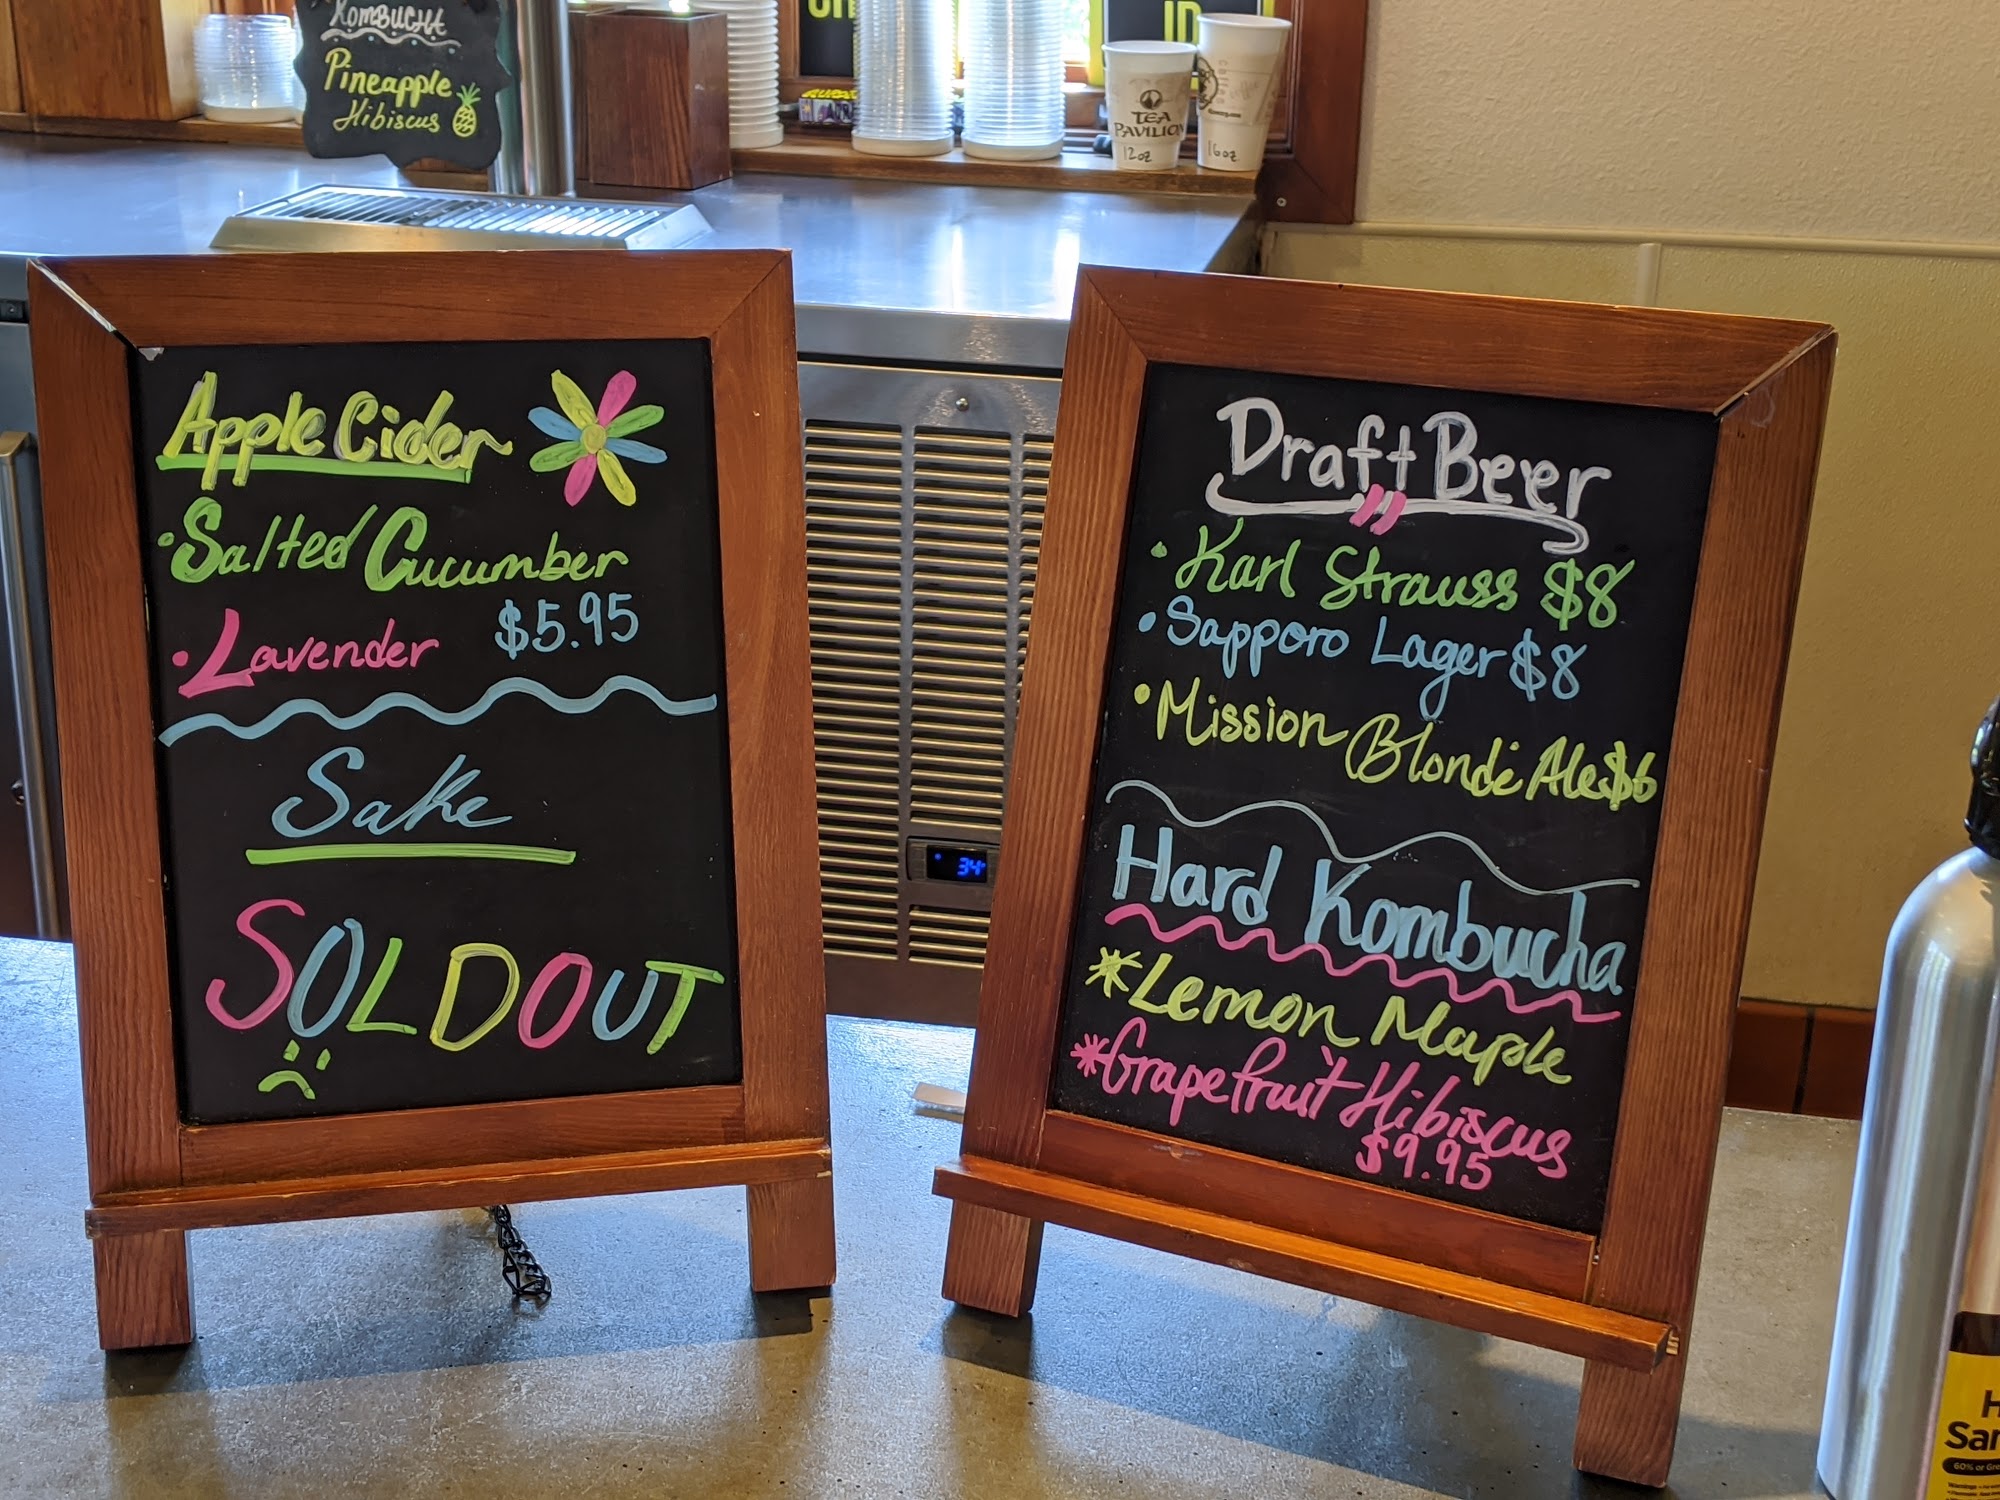 KOMBUCHA
Pineapple
Hibiscus
ID
TEA
PAVILION
12oz
16oz
Apple Cider
• Salted Cucumber
• Lavender $5.95
Sake
SOLDOUT
34
Draft Beer
• Karl Strauss $8
• Sapporo Lager $8
• Mission Blonde Ale $6
Hard Kombucha
* Lemon Maple
* Grapefruit Hibiscus
$9.95